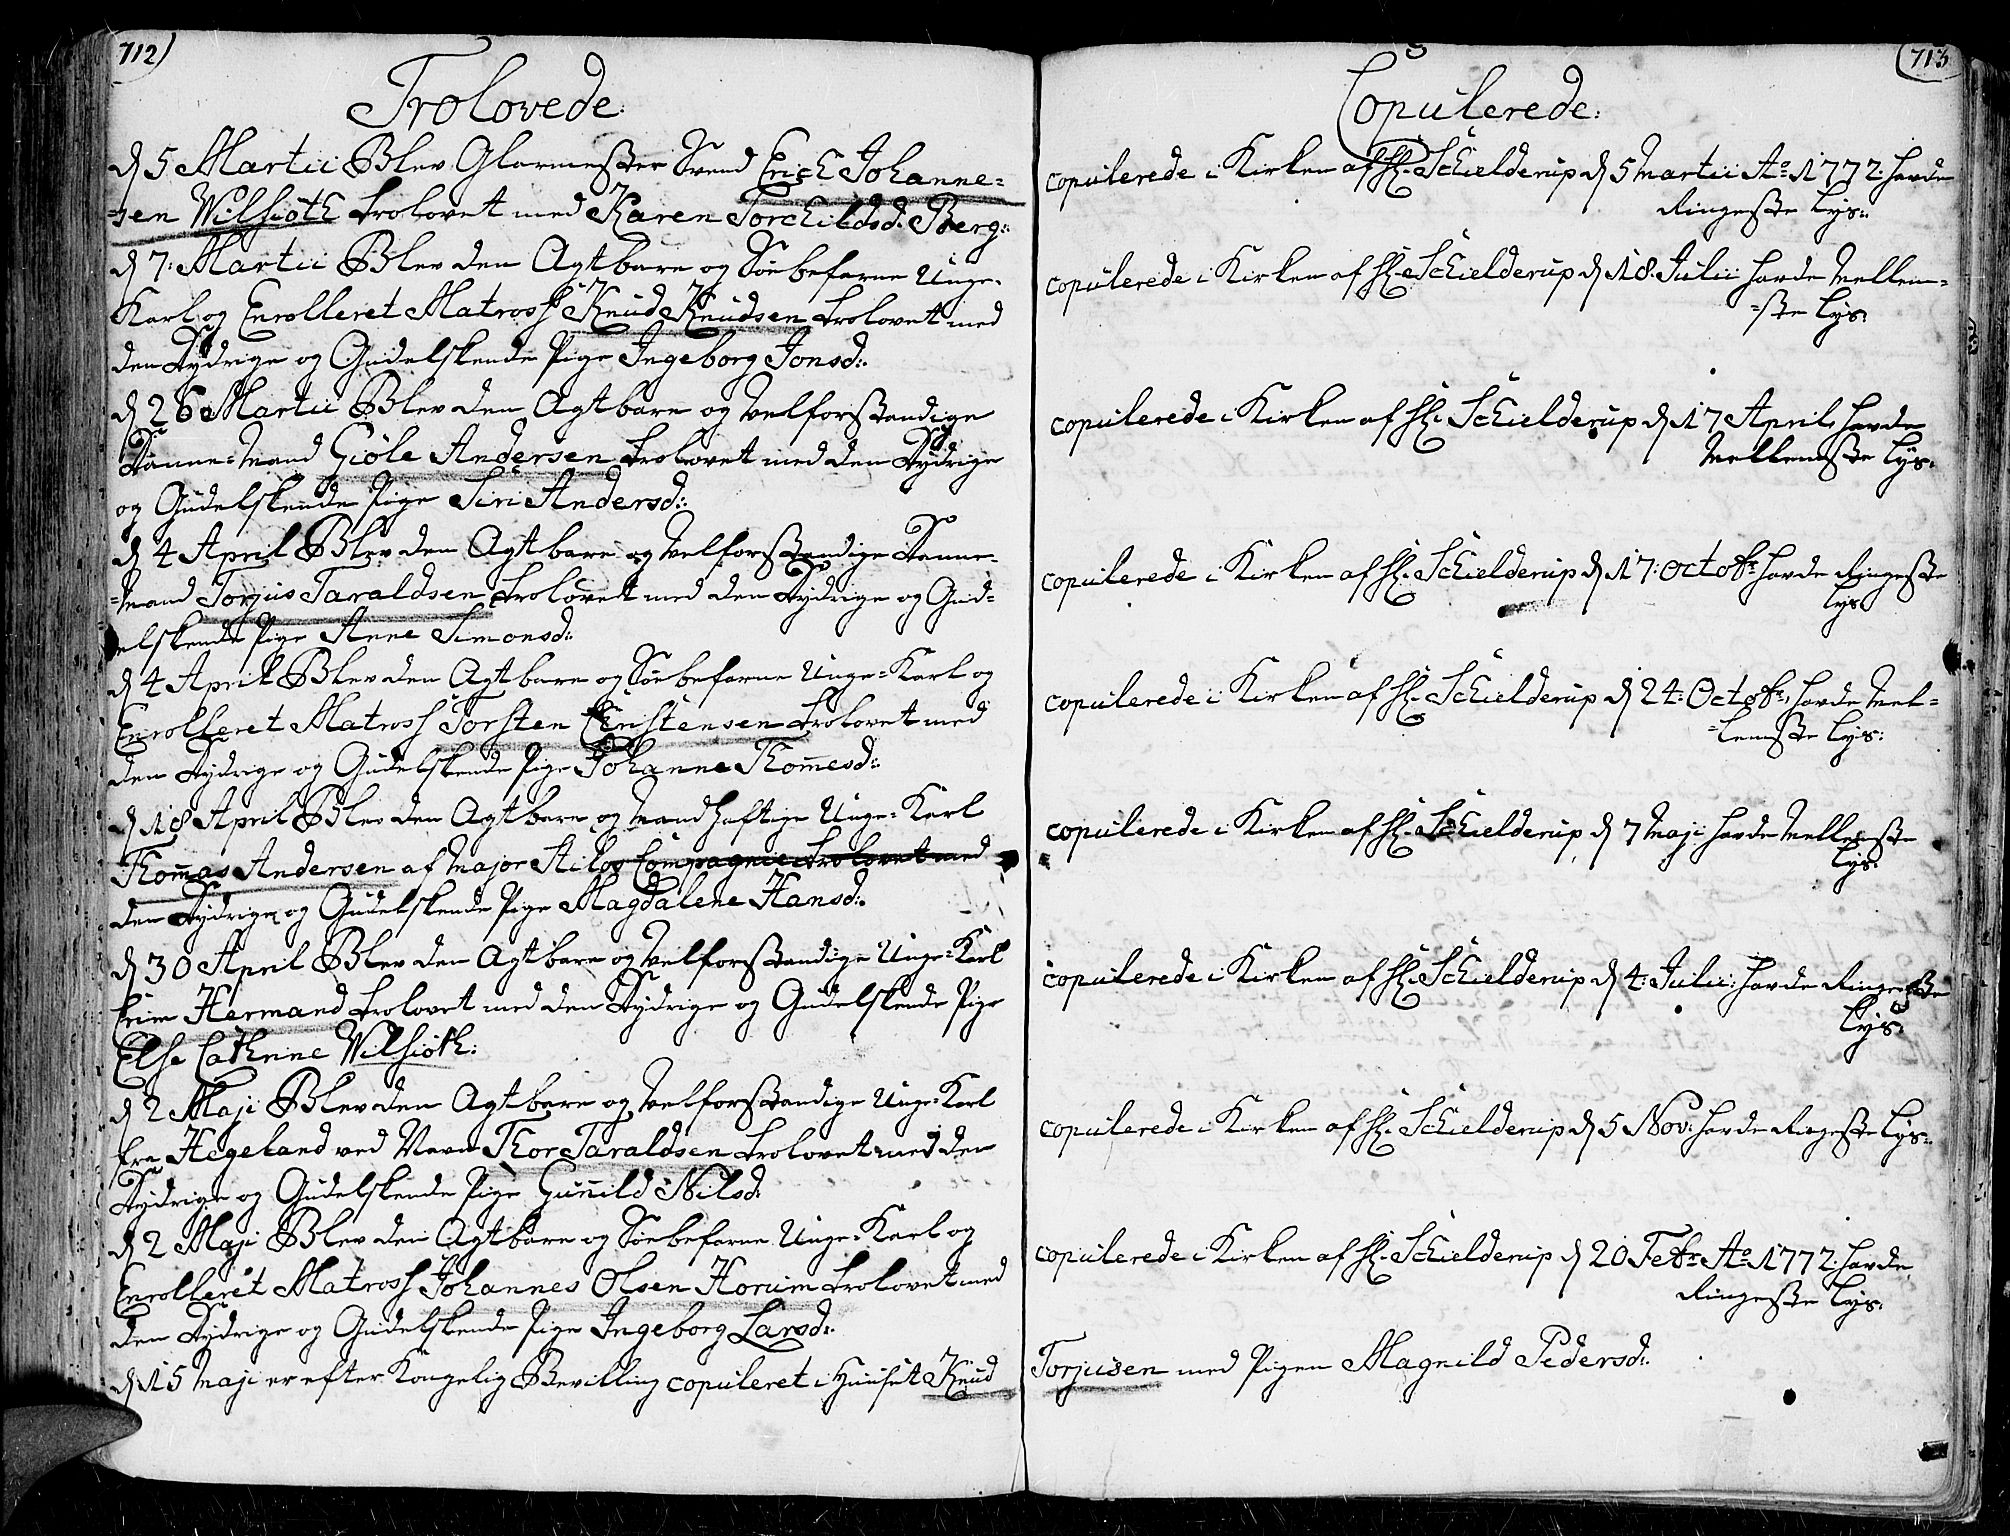 712)
Trolovede:
d 5 Martii Blev Glarmester Svend Erich Johanne=
=sen Wilsiøth trolovet med Karen Torchildsd. Berg:
d 7: Martii Blev den Agtbare og Søebefarne Unge-
Karl og Enrolleret Matross Knud Knudsen trolovet med
den Dydrige og Gudelskende Pige Ingeborg Jonsd:
d 26 Martii Blev den Agtbare og velforstandige
Danne=Mand Giøle Andersen trolovet med den Dydrige
og Gudelskende Pige Siri Andersd:
d 4 April Blev den Agtbare og velforstandige Danne-
=Mand Torjus Taraldsen trolovet med den Dydrige og Gud=
elskende Pige Anne Simonsd:
d 4 April Blev den Agtbare og Søebefarne Unge=Karl og
Enrolleret Matross Torsten Christensen trolovet med
den Dydrige og Gudelskende Pige Johanne Thomesd:
d 18 April Blev den Agtbare og Mandhaftige Unge=Karl
Thomas Andersen af Major Compagnie trolovet med
den Dydrige og Gudelskende Pige Magdalene Hansd:
d 30 April Blev den Agtbare og velforstandige Unge=Karl
Hermand trolovet med den Dydrige og Gudelskende Pige
Else Cathrine Wilsiøth:
d 2 Maji Blev den Agtbare og velforstandige Unge=Karl
fra Hegeland ved Navn Thor Taraldsen trolovet med den
Dydrige og Gudelskende Pige Gunild Nilsd:
d 2 Maji Blev den Agtbare og Søebefarne Unge=Karl og
Enrolleret Matross Johannes Olsen Horum trolovet med
den Dydrige og Gudelskende Pige Ingeborg Larsd:
d 15 Maji er efter Kongelig Bevilling copuleret i Huuset Knud
713
Copulerede:
copulerede i Kirken af Hr. Schielderup d 5 Martii Ao 1772. havde
Ringeste Lys:
copulerede i Kirken af Hr. Schielderup d 18. Julii havde Mellem=
=ste Lys:
copulerede i Kirken af Hr. Schielderup d 17 April, havde
Mellemste Lys:
copulerede i Kirken af Hr. Schielderup d 17: Octobr havde Ringeste
Lys.
copulerede i Kirken af Hr. Schielderup d 24: Octobr, havde Mel=
=lemste Lys:
copulerede i Kirken af Hr. Schielderup d 7 Maji havde Mellemste
Lys:
copulerede i Kirken af Hr. Schielderup d 4: Julii: havde Ringeste
Lys:
copulerede i Kirken af Hr. Schielderup d 5 Nov: havde Ringeste Lys:
copulerede i Kirken af Hr. Schielderup d 20 Febr Ao 1772. havde
Ringeste Lys:
Torjusen med Pigen Magnild Pedersd: